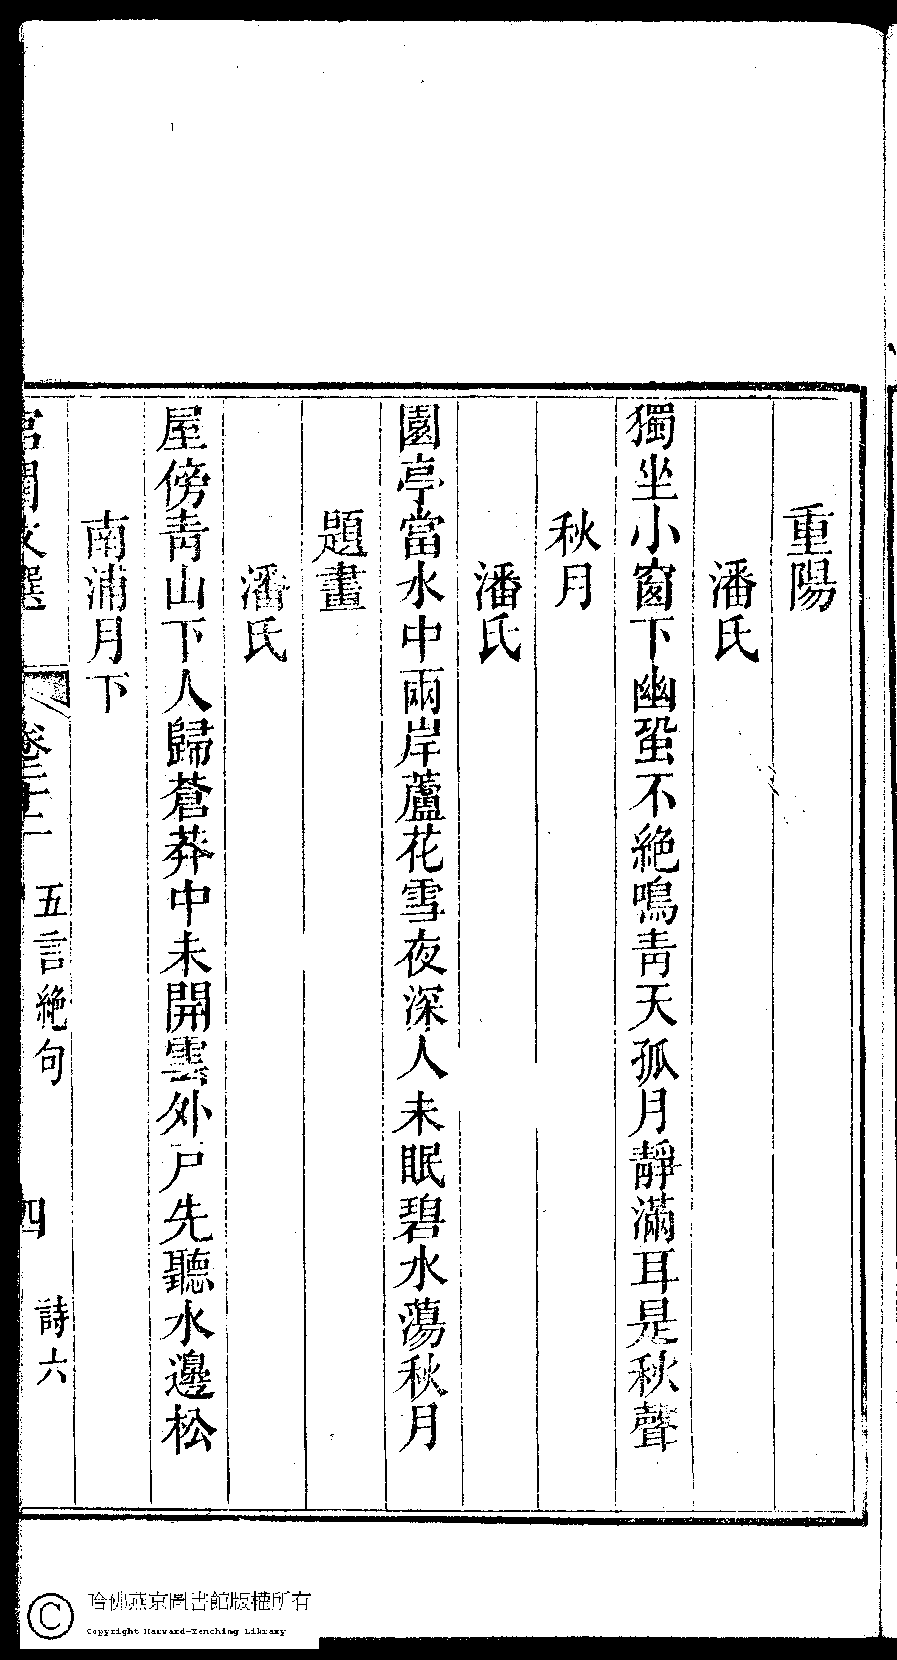 重陽
潘氏
獨坐小窗下幽蛩不絶鳴青天孤月靜滿耳是秋聲
秋月
潘氏
園亭當水中兩岸蘆花雪夜深人未眠碧水蕩秋月
題畫
潘氏
屋傍青山下人歸蒼莽中未開雲外戸先聽水邊松
南浦月下
宮閨文選
卷二十二
五言絶句
四
詩六
哈佛燕京圖書館版權所有
Copyright Harvard-Yenching Library